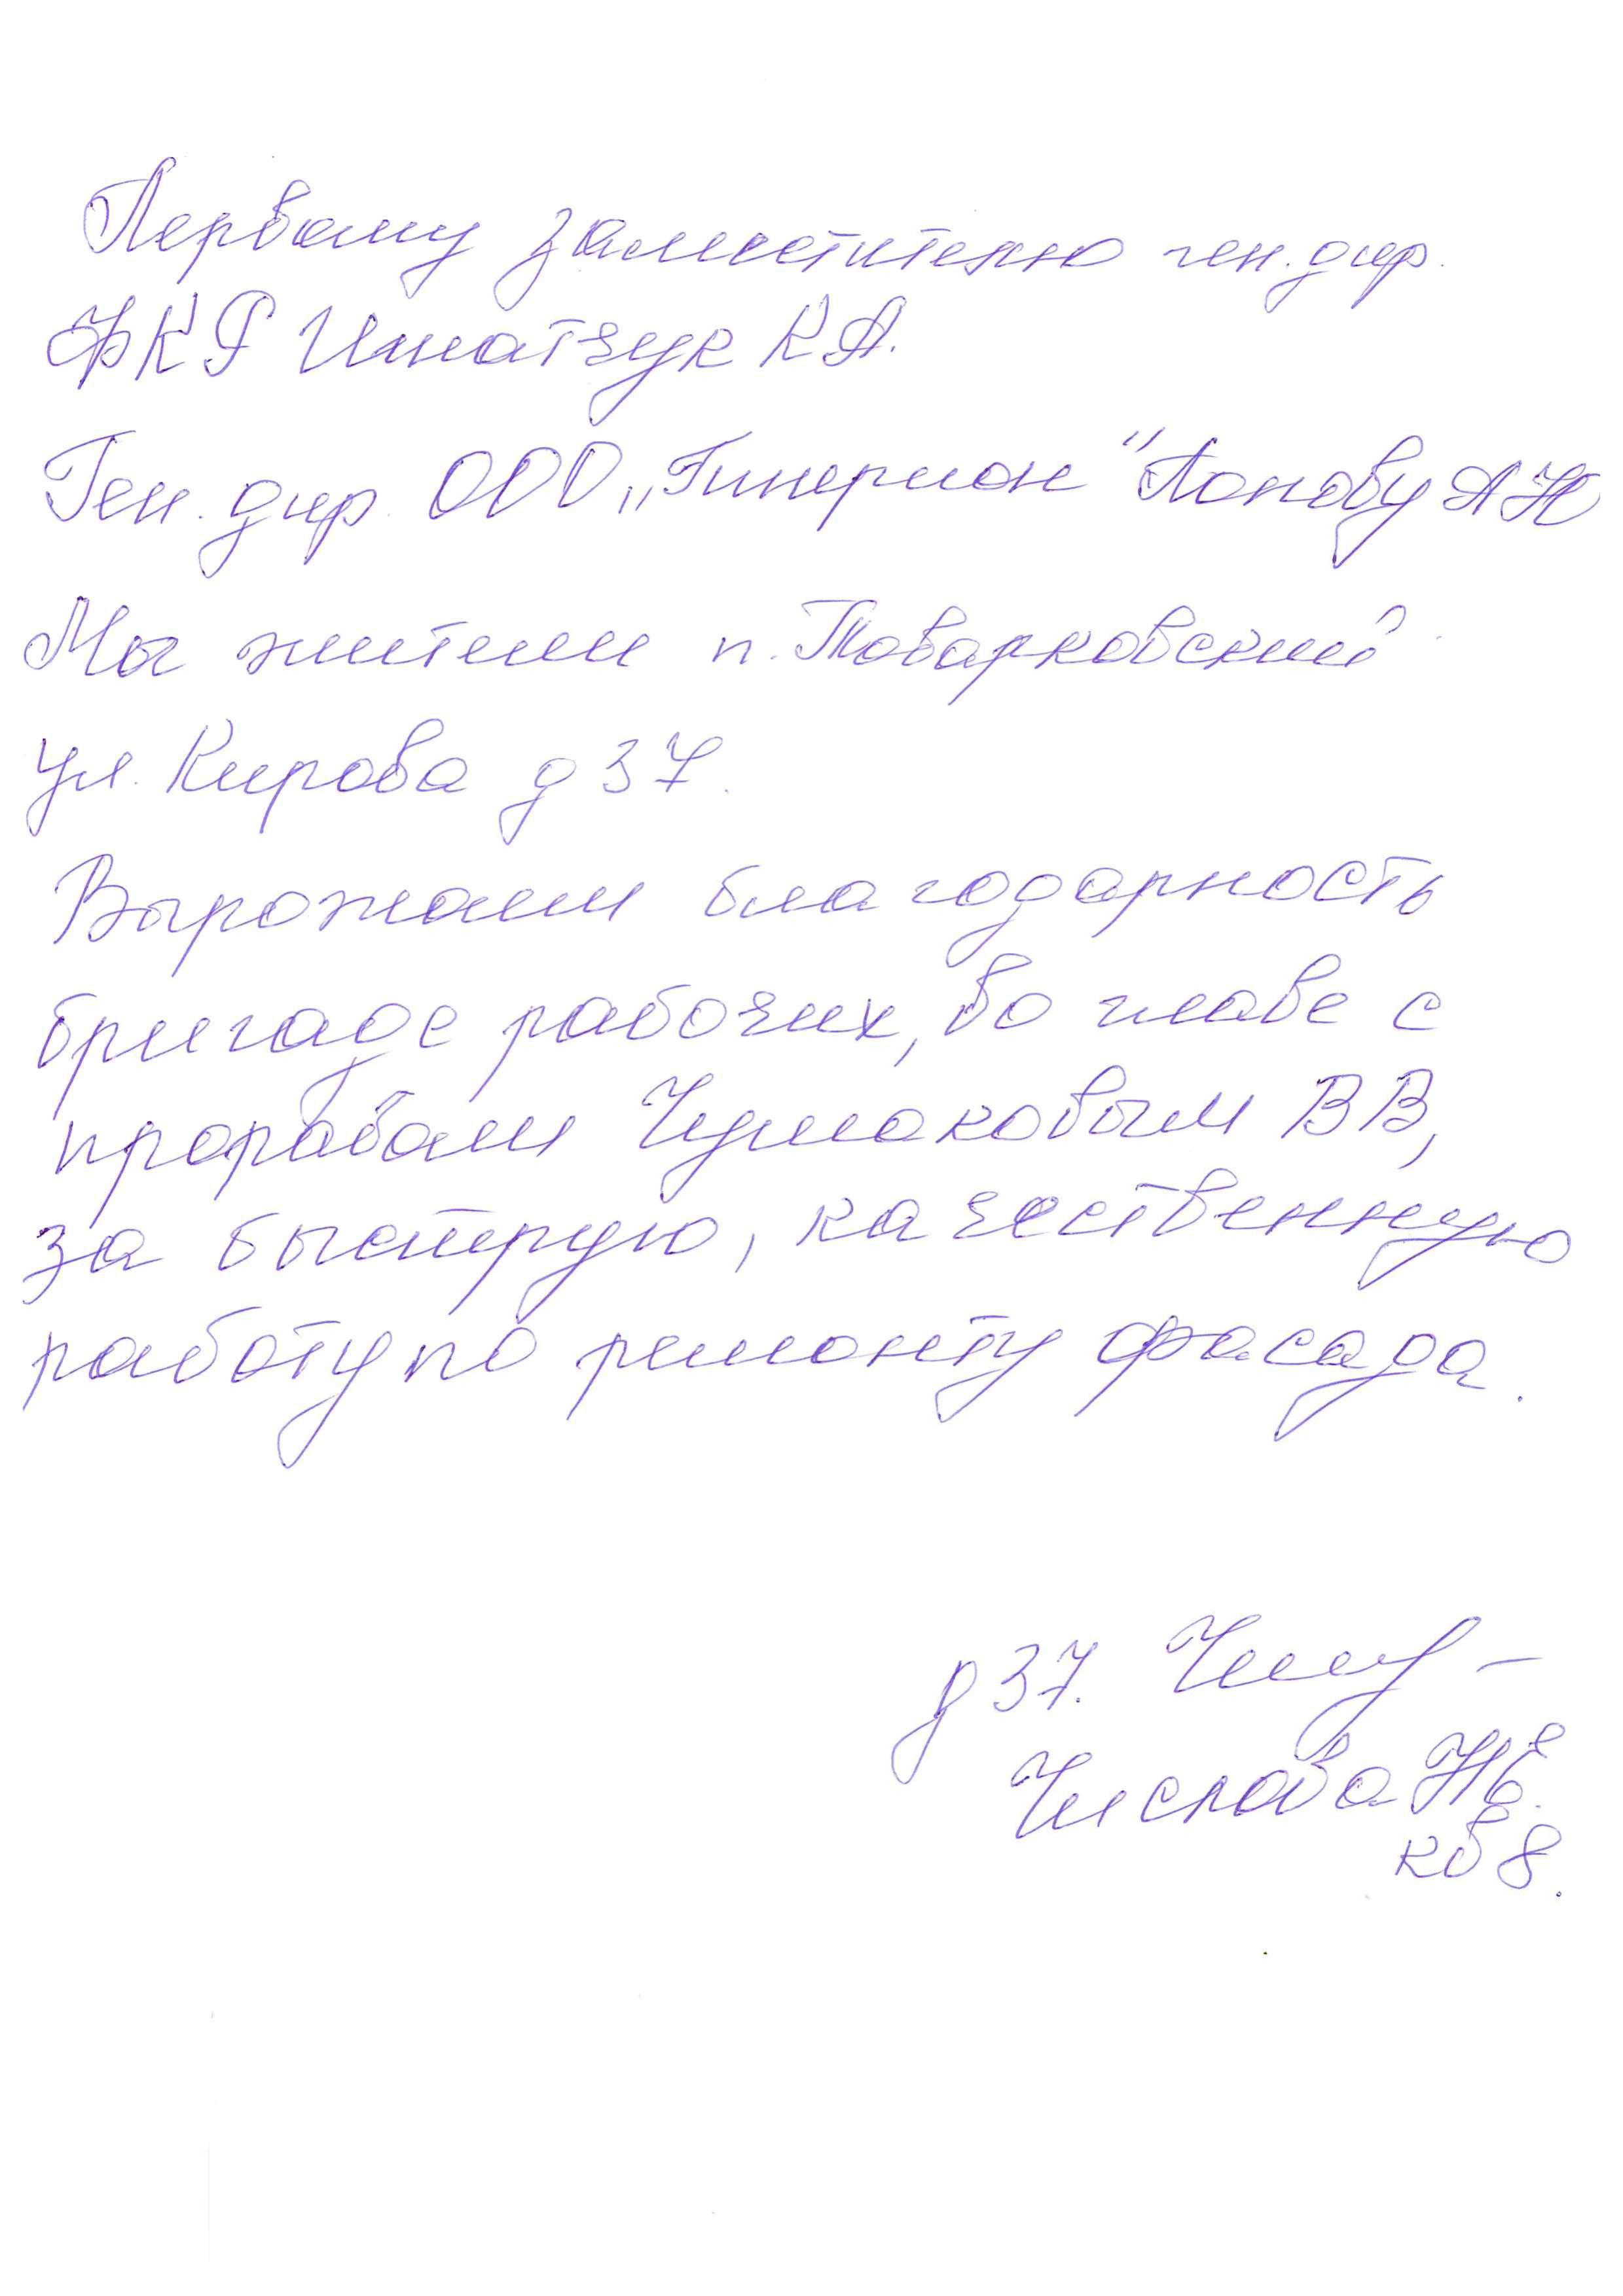 Первому заместителю ген. дир.
ФКР Игнатчук К А.
Ген. дир. ООО „Гиперион" Попову А Н
Мы жители п. Товарковский
ул. Кирова д 37.
Вырожаем благодарность
бригаде рабочих, во главе с
прорабом Чумаковым В В,
за быструю, качественную
работу по ремонту фасада.
д 37.
Числова Н Е.
кв 8.